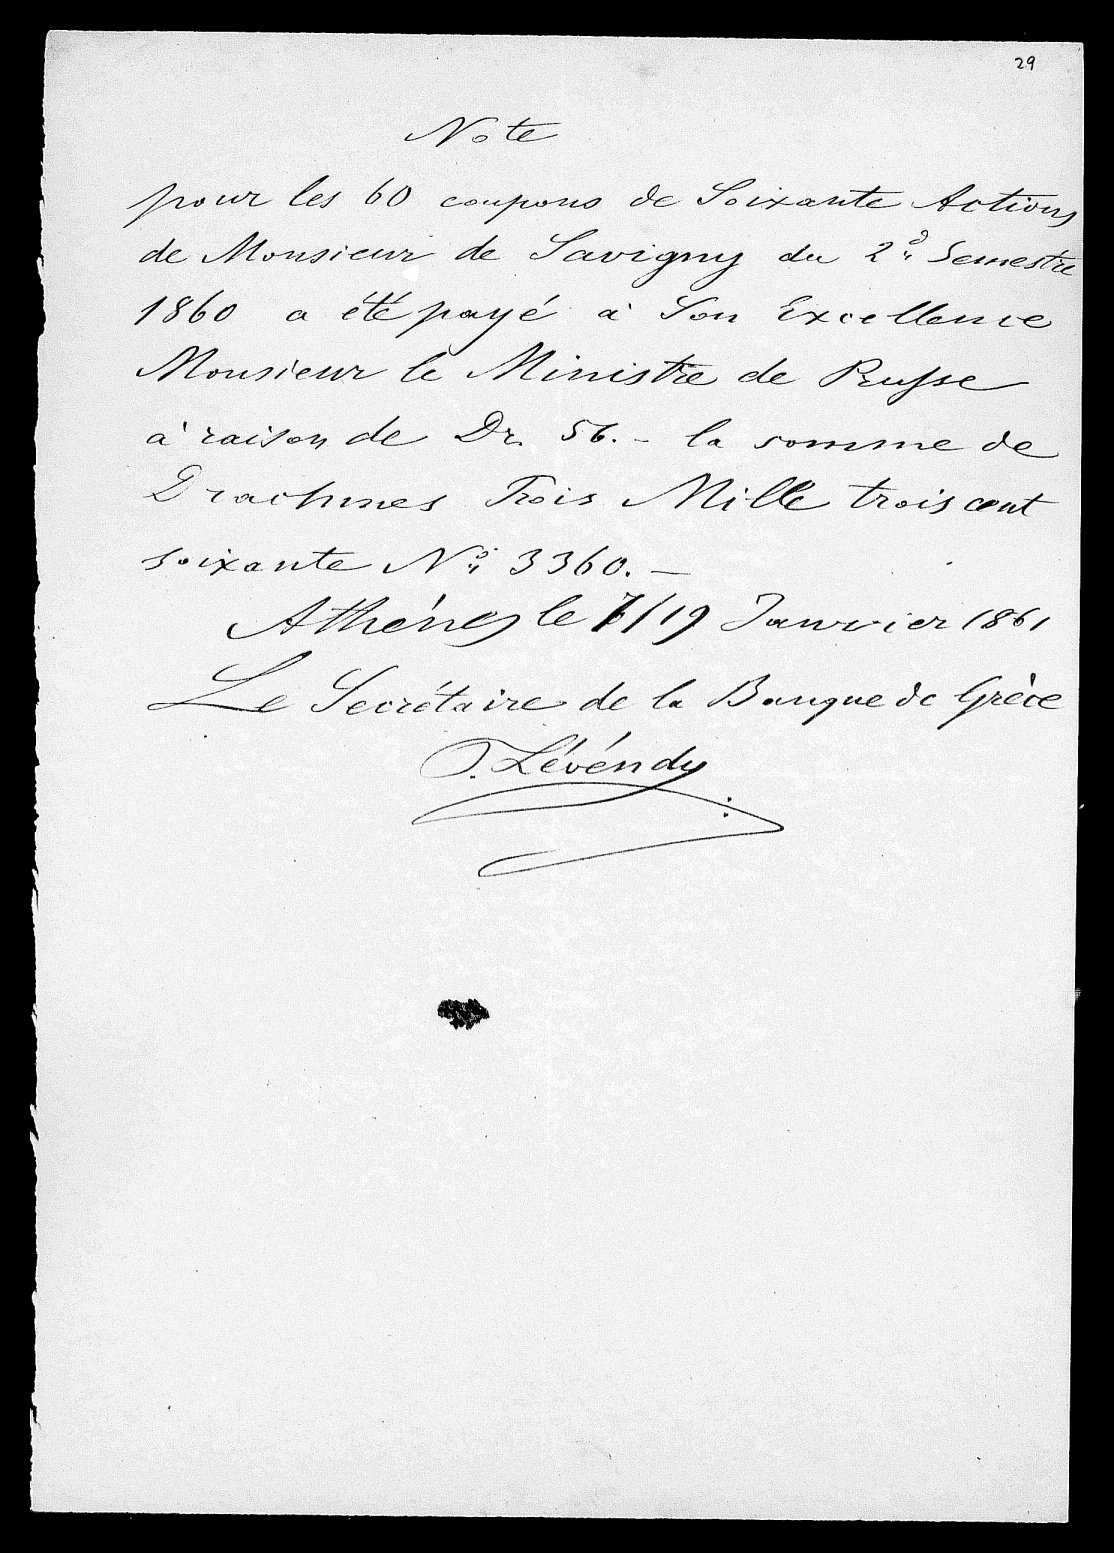 29
Note
pour les 60 coupons de Soixante Actions
de Monsieur de Savigny du 2d Semestre
1860 a été payé à Son Excellence
Monsieur le Ministre de Prusse
à raison de Dr. 56.- la somme de
Drachmes Trois Mille trois cent
soixante No 3360.—
Athénes le 7/19 Janvier 1861
Le Secrétaire de la Banque de Grèce
O. Lévéndy